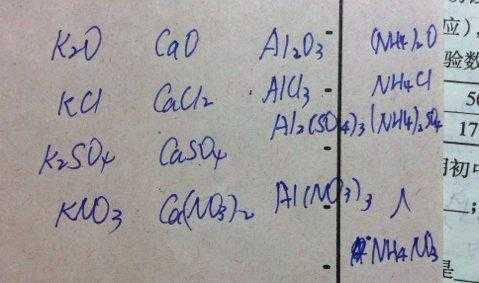 K2O CaO Al2O3 (NH4)2O
KCl CaCl2 AlCl3 NH4Cl
K2SO4 CaSO4 Al2(SO4)3 (NH4)2SO4
KNO3 Ca(NO3)2 Al(NO3)3
NH4NO3
应),
验数
50
17
初中
;
是